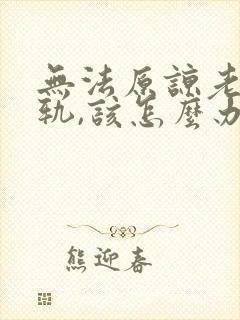 無法原諒老
軌,該怎麼办
熊迎春